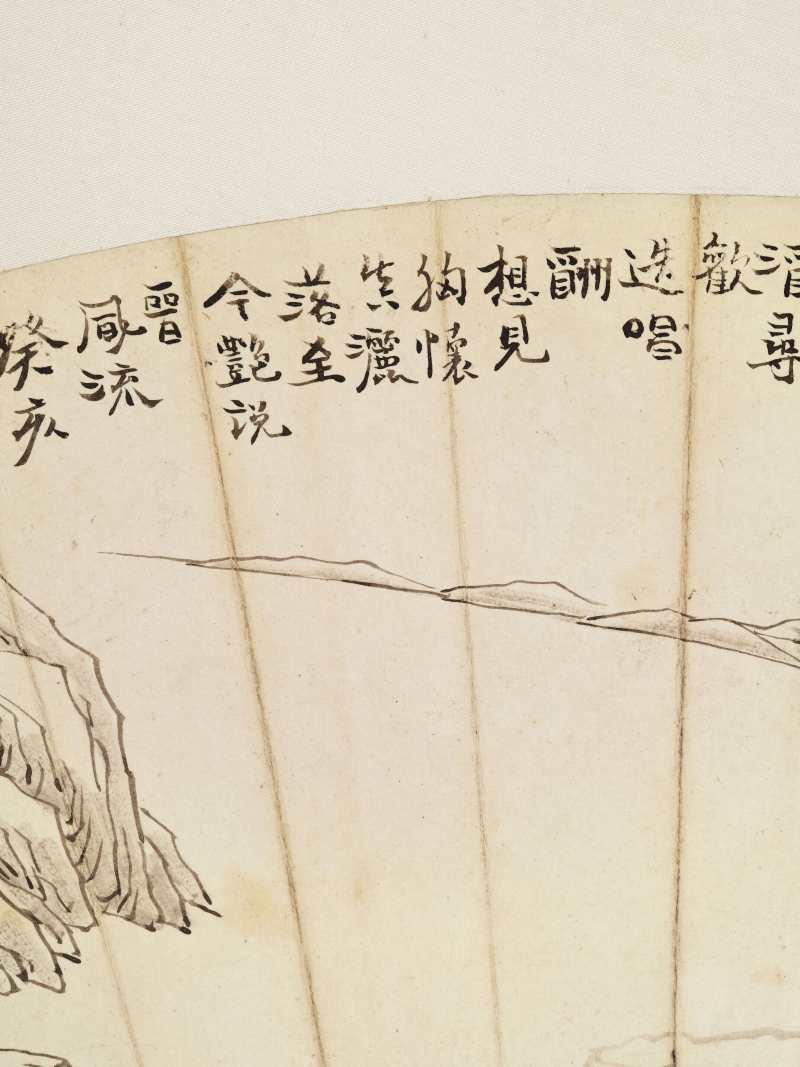 尋
歡
迭唱
酬
想見
胸懷
真灑
落至
今豔説
晉
風流
癸亥